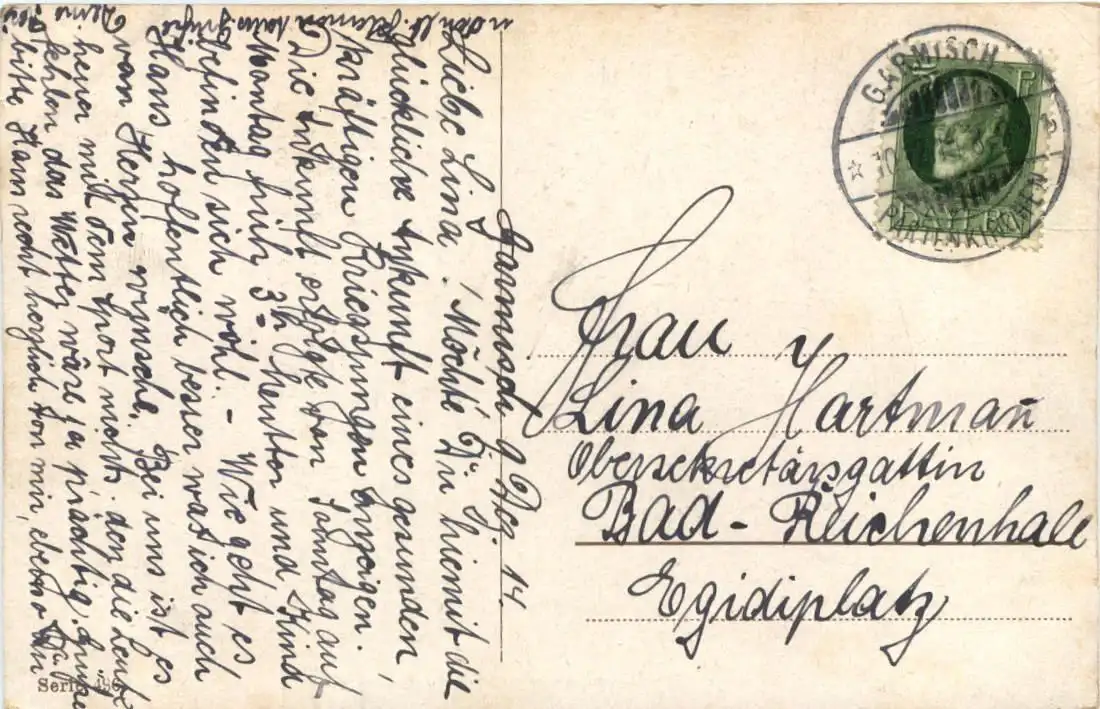 Garmisch 9 Dez. 14.
Liebe Lina! Möchte Dir hiemit die
glückliche Ankunft eines gesunden,
kräftigen Kriegsjungen anzeigen.
Die Ankunft erfolgte von Sonntag auf
Montag früh 3h Mutter und Kind
befinden sich wohl. - Wie geht es
Hans hoffentlich besser was ich auch
von Herzen wünsche. Bei uns ist es
heuer mit dem Sport nichts, den die Leute
fehlen das Wetter wäre ja prächtig.
bitte Hans recht herzlich von mir, ebenso
Frau
Lina Hartmañ
Obersekretärsgattin
Bad-Reichenhall
Egidiplatz
GARMISCH
PARTENKIRCHEN
BAYERN
Serie 496